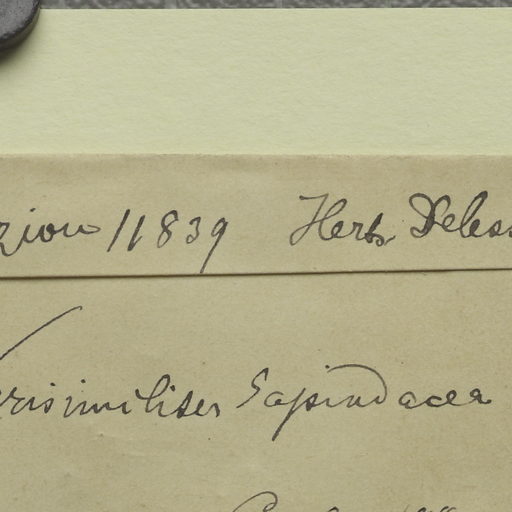 ziou 11839 Herb. Deless
Verisimiliter Sapindacea